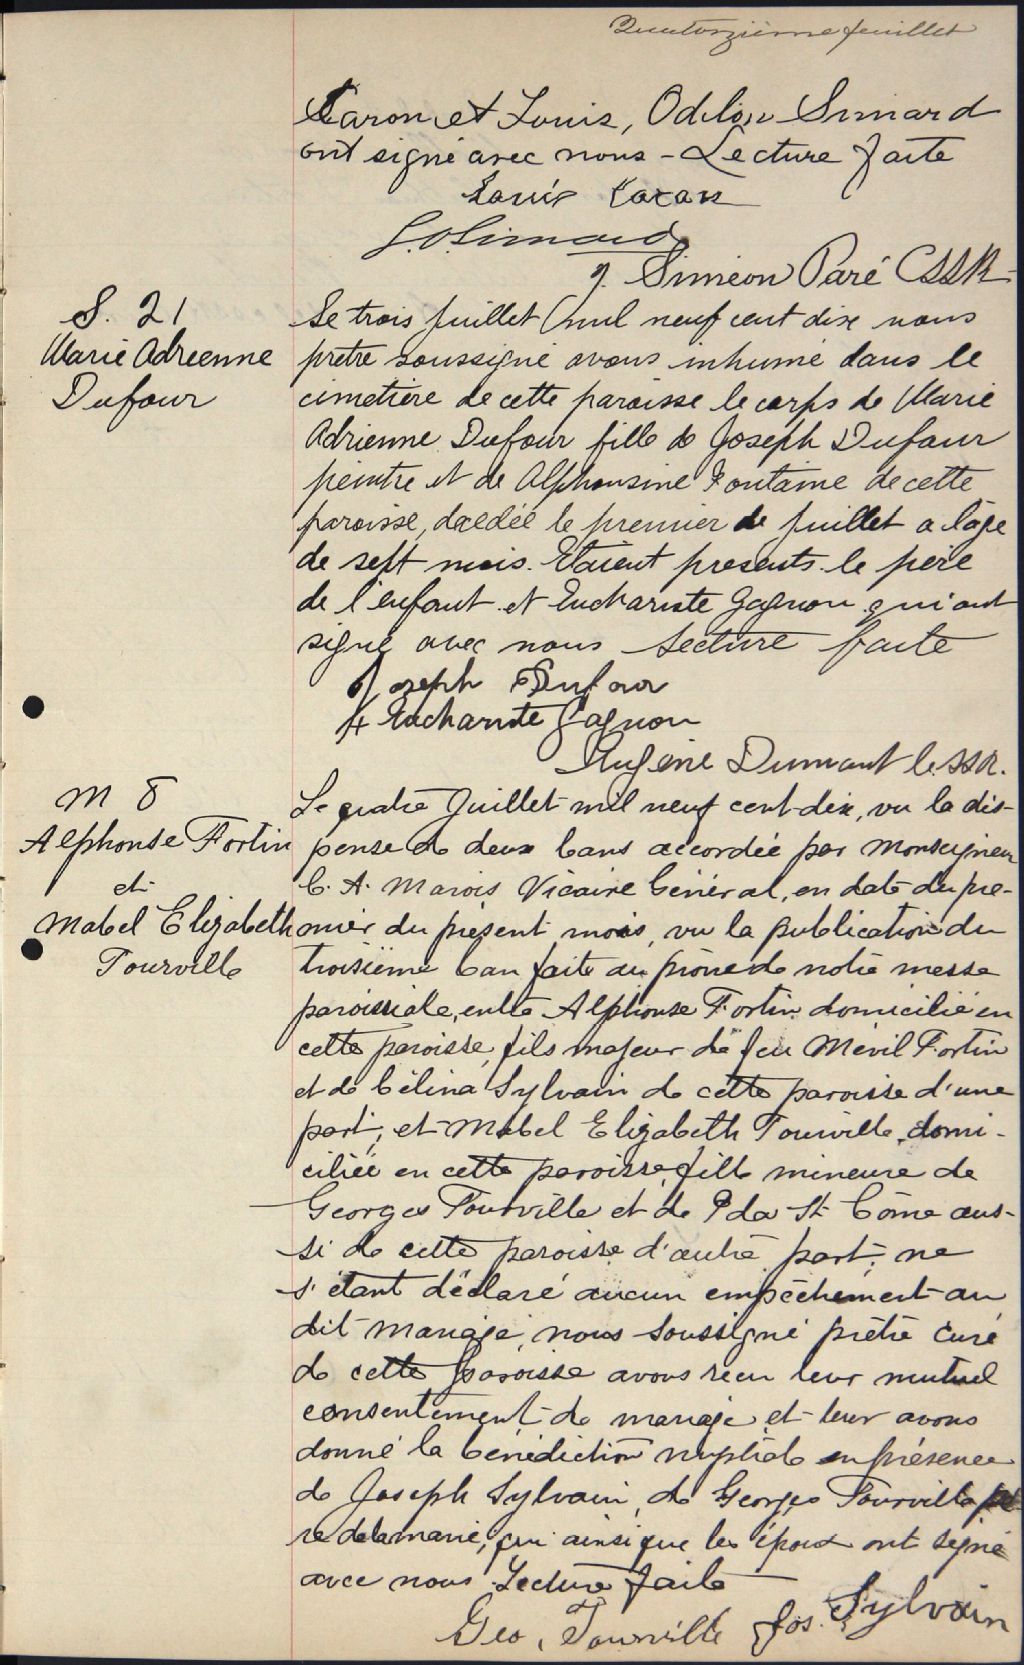 Quatorzième feuillet
Caron et Louis, Odilon Simard
ont signé avec nous - Lecture faite
Louis Caron
L.O. Simard
J. Siméon Paré CSSR
S. 21
Marie Adrienne
Dufour
Le trois juillet mil neuf cent dix nous
prêtre soussigné avons inhumé dans le
cimetière de cette paroisse le corps de Marie
Adrienne Dufour fille de Joseph Dufour
peintre et de Alphonsine Fontaine de cette
paroisse, décédée le premier de juillet a l'âge
de sept mois. Etaient presents le père
de l'enfant et Euchariste Gagnon qui ont
signé avec nous Lecture faite
Joseph Dufour
Euchariste Gagnon
Eugène Dumont C.SS.R.
M 8
Alphonse Fortin
et
Mabel Elizabeth
Tourville
Le quatre Juillet mil neuf cent dix, vu la dis-
pense de deux bans accordée par Monseigneur
C. A. Marois Vicaire Général, en date du pre-
mier du présent mois, vu la publication du
troisième ban faite au prône de notre messe
paroissiale, entre Alphonse Fortin domicilié en
cette paroisse, fils majeur de feu Mévil Fortin
et de Célina Sylvain de cette paroisse d'une
part; et Mabel Elizabeth Tourville, domi-
ciliée en cette paroisse, fille mineure de
Georges Tourville et de Ida St Côme aus-
si de cette paroisse d'autre part; ne
s'étant déclaré aucun empêchement au
dit mariage, nous soussigné prêtre curé
de cette paroisse avons reçu leur mutuel
consentement de mariage et leur avons
donné la bénédiction nuptiale en présence
de Joseph Sylvain, de Georges Tourville pè-
re de la marié, qui ainsi que les époux ont signé
avec nous. Lecture faite
Geo. Tourville Jos. Sylvain